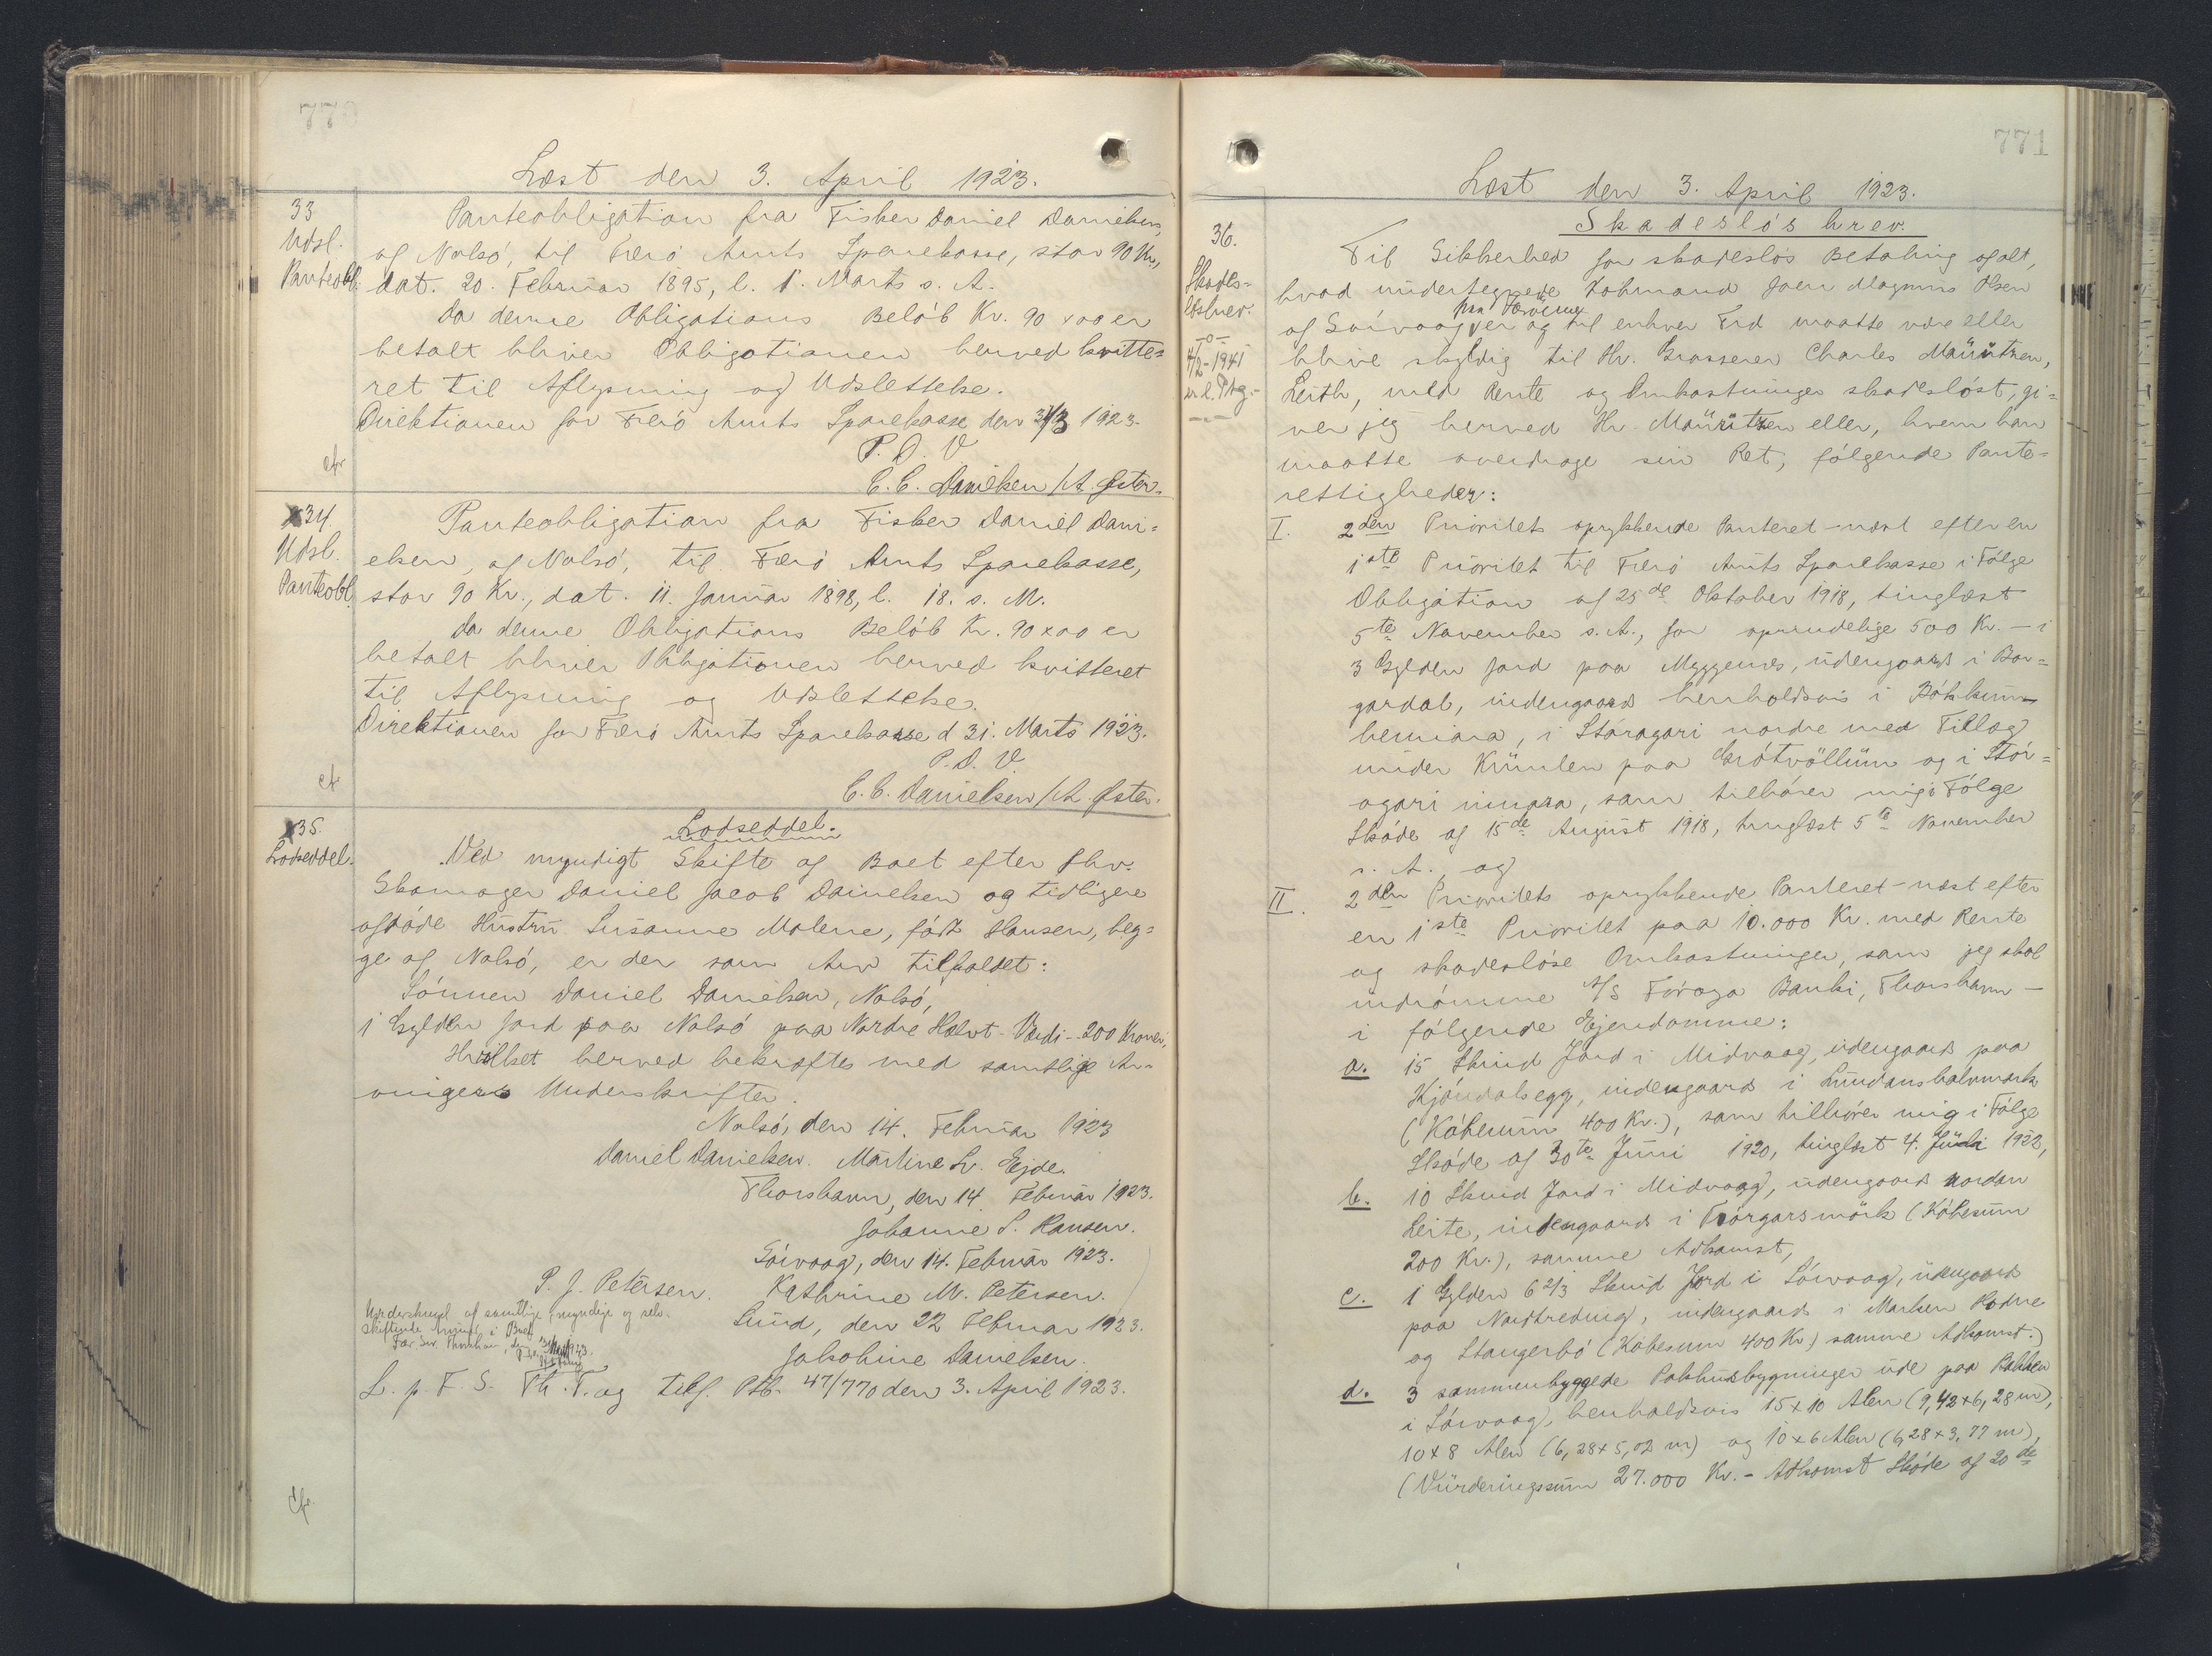 770
Læst den 3. April 1923.
33
Udsl.
Panteobl.
Panteobligation fra Fisker Daniel Danielsen,
af Nolsö, til Færö Amts Sparekasse, stor 90 Kr.,
dat. 20. Februar 1895, l. 1. Marts s. A.
Da denne Obligations Belöb Kr. 90 x 00 er
betalt bliver Obligationen herved kvitte=
ret til Aflysning og Udslettelse.
Direktionen for Færö Amts Sparekasse den 31/3 1923.
P. D. V.
C. C. Danielsen / A. Öster.
cfr
34.
Udsl.
Panteobl.
Panteobligation fra Fisker Daniel Dani=
elsen, af Nolsö, til Færö Amts Sparekasse,
stor 90 Kr., dat. 11. Januar 1898, l. 18. s. M.
Da denne Obligations Belöb Kr. 90 x 00 er
betalt bliver Obligationen herved kvitteret
til Aflysning og Udslettelse.
Direktionen for Færö Amts Sparekasse d 31. Marts 1923.
P. D. V.
C. C. Danielsen / A. Öster.
cf.
35.
Lodseddel.
Lodseddel.
Ved myndigt Skifte af Boet efter fhv.
Skomager Daniel Jacob Danielsen og tidligere
afdöde Hustru Susanne Malene, födt Hansen, beg=
ge af Nolsö, er der som Arv tilfaldet:
Sönnen Daniel Danielsen, Nolsö,
1 Gylden Jord paa Nolsö paa Nordre Halvt - Værdi - 200 Kroner,
Hvilket herved bekræftes med samtlige Ar=
vingers Underskrifter.
Nolsö, den 14. Februar 1923
Daniel Danielsen. Martine Sr. Ejde.
Thorshavn, den 14. Februar 1923.
Johanne S. Hansen.
Sörvaag, den 14. Februar 1923.
P. J. Petersen. Kathrine M. Petersen.
Sund, den 22 Februar 1923.
Jakobine Danielsen.
Underskrevet af samtlige myndige og selv-
skiftende Arvinger i Boet
L. p. F. S. Th. T. og tilf. Ptb. 47/770 den 3. April 1923.
Cfr.
771
Læst den 3. April 1923.
36.
Skades-
lösbrev.
4/2-1941
Skadeslös brev.
Til Sikkerhed for skadeslös Betaling af alt,
hvad undertegnede Köbmand Joen Magnus Olsen
paa Færöerne
af Sörvaag er og til enhver Tid maatte være eller
blive skyldig til Hr. Grosserer Charles Mauritzen,
Leith, med Rente og Omkostninger skadeslöst, gi=
ver jeg herved Hr. Mauritzen eller, hvem han
maatte overdrage sin Ret, fölgende Pante=
rettigheder:
I. 2den Prioritets oprykkende Panteret - næst efter en
1ste Prioritet til Færö Amts Sparekasse i Fölge
Obligation af 25de Oktober 1918, tinglæst
5te November s. A., for oprindelige 500 Kr. - i
3 Gylden Jord paa Myggenæs, udengaards i Bor=
gardal, indengaards henholdsvis i
hemiara, i Stóragari nordre med Tillæg
under Krünlen paa Grótvöllum og i Stór=
agari innara, som tilhörer mig i Fölge
Sköde af 15de August 1918, tinglæst 5te November
s. A., og
II. 2den Prioritets oprykkende Panteret - næst efter
en 1ste Prioritet paa 10.000 Kr. med Rente
og skadeslöse Omkostninger, som jeg skal
indrömme A/S Föroya Banki, Thorshavn -
i fölgende Ejendomme:
a. 15 Skind Jord i Midvaag, udengaards paa
Kjóndalsegg, indengaards i Lundansbalsmark
(Köbesum 400 Kr.), som tilhörer mig i Fölge
Sköde af 30te Juni 1920, tinglæst 4. Juli 1922,
b. 10 Skind Jord i Midvaag, udengaards nordan
Leite, indengaards i Tórgarsmörk (Köbesum
200 Kr.), samme Adkomst,
c. 1 Gylden 6 2/3 Skind Jord i Sörvaag, udengaards
paa Nordtreding, indengaards i Marken Rodne
og Stangerbö (Köbesum 400 Kr) samme Adkomst.)
d. 3 sammenbyggede Pakhusbygninger ude paa Bakken
i Sörvaag, henholdsvis 15 x 10 Alen (9,42 x 6,28 m),
10 x 8 Alen (6,28 x 5,02 m) og 10 x 6 Alen (6,28 x 3,77 m),
(Vurderingssum 27.000 Kr. - Adkomst Sköde af 20de